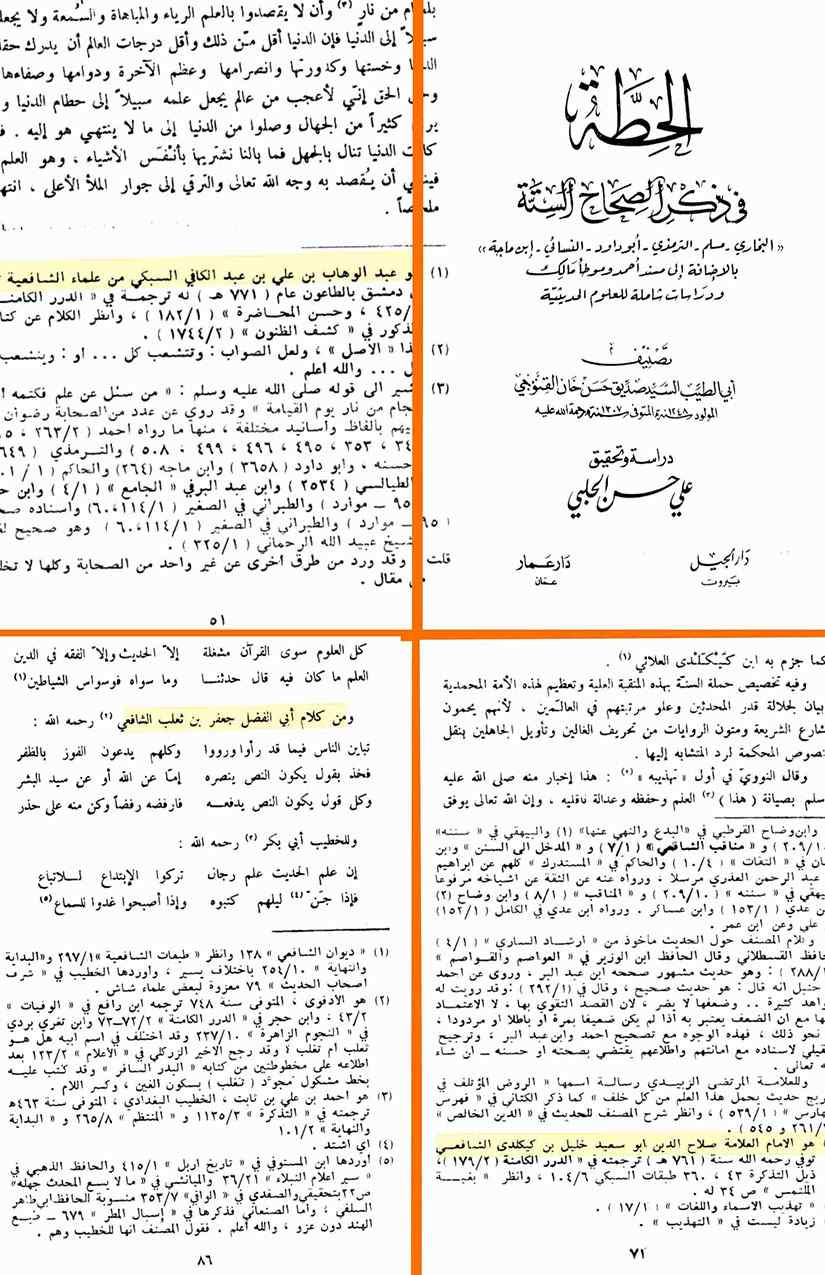 الحطة
في ذكر الصحاح الستة
« البخاري - مسلم - الترمذي - أبو داود - النسائي - إبن ماجة »
بالإضافة إلى مسند أحمد وموطأ مالك
ودراسات شاملة للعلوم الحديثية
تصنيف
أبي الطيب السيد صديق حسن خان القنوجي
المولود سنة ١٢٤٨ المتوفى سنة ١٣٠٧ رحمة الله عليه
دراسة وتحقيق
علي حسن الحلبي
دار الجيل
بيروت
دار عمار
عمان
من نار (٣) وأن لا يقصدوا بالعلم الرياء والمباهاة والسمعة ولا
إلى الدنيا فإن الدنيا أقل من ذلك وأقل درجات العالم أن يدرك
وخستها وكدورتها وانصرامها وعظم الآخرة ودوامها وصفاءها
الحق إنني لأعجب من عالم يجعل علمه سبيلاً إلى حطام الدنيا
كثيراً من الجهال وصلوا من الدنيا إلى ما لا ينتهي هو إليه .
الدنيا تنال بالجهل فما بالنا نشتريها بأنفس الأشياء ، وهو العلم
أن يُقصد به وجه الله تعالى والترقي إلى جوار الملأ الأعلى ،
(١) عبد الوهاب بن علي بن عبد الكافي السبكي من علماء الشافعية
دمشق بالطاعون عام ( ٧٧١ هـ ) له ترجمة في « الدرر
، وحسن المحاضرة » ( ١٨٢/١ ) ، وانظر الكلام عن
في « كشف الظنون » ( ١٧٤٤/٢ ) .
(٢) « الأصل » ، ولعل الصواب : وتتشعب كل ... او :
... والله أعلم .
(٣) الى قوله صلى الله عليه وسلم : « من سئل عن علم فكتمه
من نار يوم القيامة » وقد روي عن عدد من الصحابة رضوان
بألفاظ وأسانيد مختلفة ، منها ما رواه احمد ( ٢٦٣/٢ ،
، ٣٥٣ ، ٤٩٥ ، ٤٩٦ ، ٤٩٩ ، ٥٠٨ ) والترمذي
، وابو داود ( ٣٦٥٨ ) وابن ماجه (٢٦٤) والحاكم
( ٢٥٣٤ ) وابن عبد البر في « الجامع » ( ٤/١ ) وابن
ــ موارد ) والطبراني في الصغير ( ٦٠،١١٤/١ ) وأسناده
ــ موارد ) والطبراني في الصغير ( ٦٠،١١٤/١ ) وهو صحيح
عبيد الله الرحماني ( ٣٢٥/١ ) .
قلت وقد ورد من طرق أخرى عن غير واحد من الصحابة وكلها لا
مقال .
٥١
كما جزم به ابن كَيْكَلْدي العلائي (١) .
وفيه تخصيص حملة السنّة بهذه المنقبة العلية وتعظيم لهذه الأمة المحمدية
بيان لجلالة قدر المحدثين وعلو مرتبتهم في العالمين ، لأنهم يحمون
الشريعة ومتون الروايات من تحريف الغالين وتأويل الجاهلين بنقل
المحكمة لرد المتشابه إليها .
وقال النوويّ في أول « تهذيبه » (٢) : هذا إخبار منه صلى الله عليه
بصيانة ( هذا ) (٣) العلم وحفظه وعدالة ناقليه ، وإن الله تعالى يوفق
وابن وضاح القرطبي في «البدع والنهي عنها» (١) والبيهقي في « سننه»
و « مناقب الشافعي» ( ٧/١ ) و « المدخل الى السنن » وابن
في « الثقات » ( ١٠/٤ ) والحاكم في « المستدرك » كلهم عن ابراهيم
عبد الرحمن العذري مرسلا ، ورواه عنه عن الثقة عن اشياخه مرفوعا
في « سننه » ( ٢٠٩/١٠ ) و « المناقب » ( ٨/١ ) وابن وضاح (٢)
عدي ( ١٥٣/١ ) وابن عساكر . ورواه ابن عدي في الكامل ( ١٥٢/١ )
علي وعن ابن عمر .
وكلام المصنف حول الحديث مأخوذ من « ارشاد الساري » ( ٤/١ )
القسطلاني وقال الحافظ ابن الوزير في « العواصم والقواصم »
: وهو حديث مشهور صححه ابن عبد البر ، وروى عن احمد
حنبل انه قال : هو حديث صحيح ، وقال في (٢٩٢/١) :وقد رويت له
كثيرة .. وضعفها لا يضر ، لان القصد التقوي بها ، لا الاعتماد
مع ان الضعف يعتبر به اذا لم يكن ضعيفا بمرة او باطلا او مردودا ،
نحو ذلك ، فهذه الوجوه مع تصحيح احمد وابن عبد البر ، وترجيح
لاسناده مع امانتهم واطلاعهم يقتضي بصحته او حسنه ــ ان شاء
تعالى .
وللعلامة المرتضى الزبيدي رسالة اسمها « الروض المؤتلف في
حديث يحمل هذا العلم من كل خلف » كما ذكر الكتاني في « فهرس
» ( ٥٣٩/١ ) ، وانظر شرح المصنف للحديث في « الدين الخالص »
هو الامام العلامة صلاح الدين ابو سعيد خليل بن كيكلدي الشافعي
توفي رحمه الله سنة ( ٧٦١ هـ ) ترجمته في « الدرر الكامنة ( ١٧٩/٢ ) ،
ذيل التذكرة ٤٣ ، ٣٦٠ طبقات السبكي ١٠٤/٦ ، وانظر « بغية
الملتمس » ص ٣٤ له .
« تهذيب الاسماء واللغات » ( ١٧/١ ) .
زيادة ليست في « التهذيب » .
٧١
كل العلوم سوى القرآن مشغلة إلاّ الحديث وإلاّ الفقه في الدين
العلم ما كان فيه قال حدثنا وما سواه فوسواس الشياطين(١)
ومن كلام أبي الفضل جعفر بن ثعلب الشافعي (٢) رحمه الله :
تباين الناس فيما قد رأوا ورووا وكلهم يدعون الفوز بالظفر
فخذ بقول يكون النص ينصره إمّا عن الله أو عن سيد البشر
وكل قول يكون النص يدفعه فارفضه رفضاً وكن منه على حذر
وللخطيب أبي بكر (٣) رحمه الله :
إن علم الحديث علم رجان تركوا الإبتداع للاتباع
فإذا جَنّ (٤) ليلهم كتبوه وإذا أصبحوا غدوا للسماع(٥)
(١) « ديوان الشافعي » ١٣٨ وانظر « طبقات الشافعية »٢٩٧/١ «والبداية
وانهاية » ٢٥٤/١٠ باختلاف يسير ، واوردها الخطيب في « شرف
اصحاب الحديث » ٧٩ معزوة لبعض علماء شاش .
(٢) هو الأدفوي ، المتوفى سنة ٧٤٨ ترجمه ابن رافع في « الوفيات »
٤٣/٢ ، وابن حجر في « الدرر الكامنة » ٧٢/٢-٧٣ وابن تغري بردي
في « النجوم الزاهرة » ٢٣٧/١٠ وقد اختلف في اسم ابيه هل هو
ثعلب ام تغلب ؟ وقد رجح الاخير الزركلي في « الأعلام » ١٢٣/٢ بعد
اطلاعه على مخطوطتين من كتابه « البدر السافر » وقد كتب عليه
بخط مشكول مجوّد ( تغلب ) بسكون الغين ، وكسر اللام .
(٣) هو احمد بن علي بن ثابت ، الخطيب البغدادي ، المتوفى سنة ٤٦٣هـ
ترجمته في « التذكرة » ١١٣٥/٣ و « المنتظم » ٢٦٥/٨ و « البداية
والنهاية » ١٠١/٢
(٤) اي اشتد .
(٥) اوردها ابن المستوفي في « تاريخ اربل » ٤١٥/١ والحافظ الذهبي في
« سير اعلام النبلاء » ٣٦/٢١ والميانشي في « ما لا يسع المحدث جهله»
ص٢٢بتحقيقي والصفدي في « الوافي» ٣٥٣/٧ منسوبة للحافظ ابي طاهر
السلفي ، واما الصنعاني فذكرها في « إسبال المطر » ٦٧٩ ــ طبع
الهند دون عزو ، والله اعلم . فقول المصنف انها للخطيب وهم .
٨٦